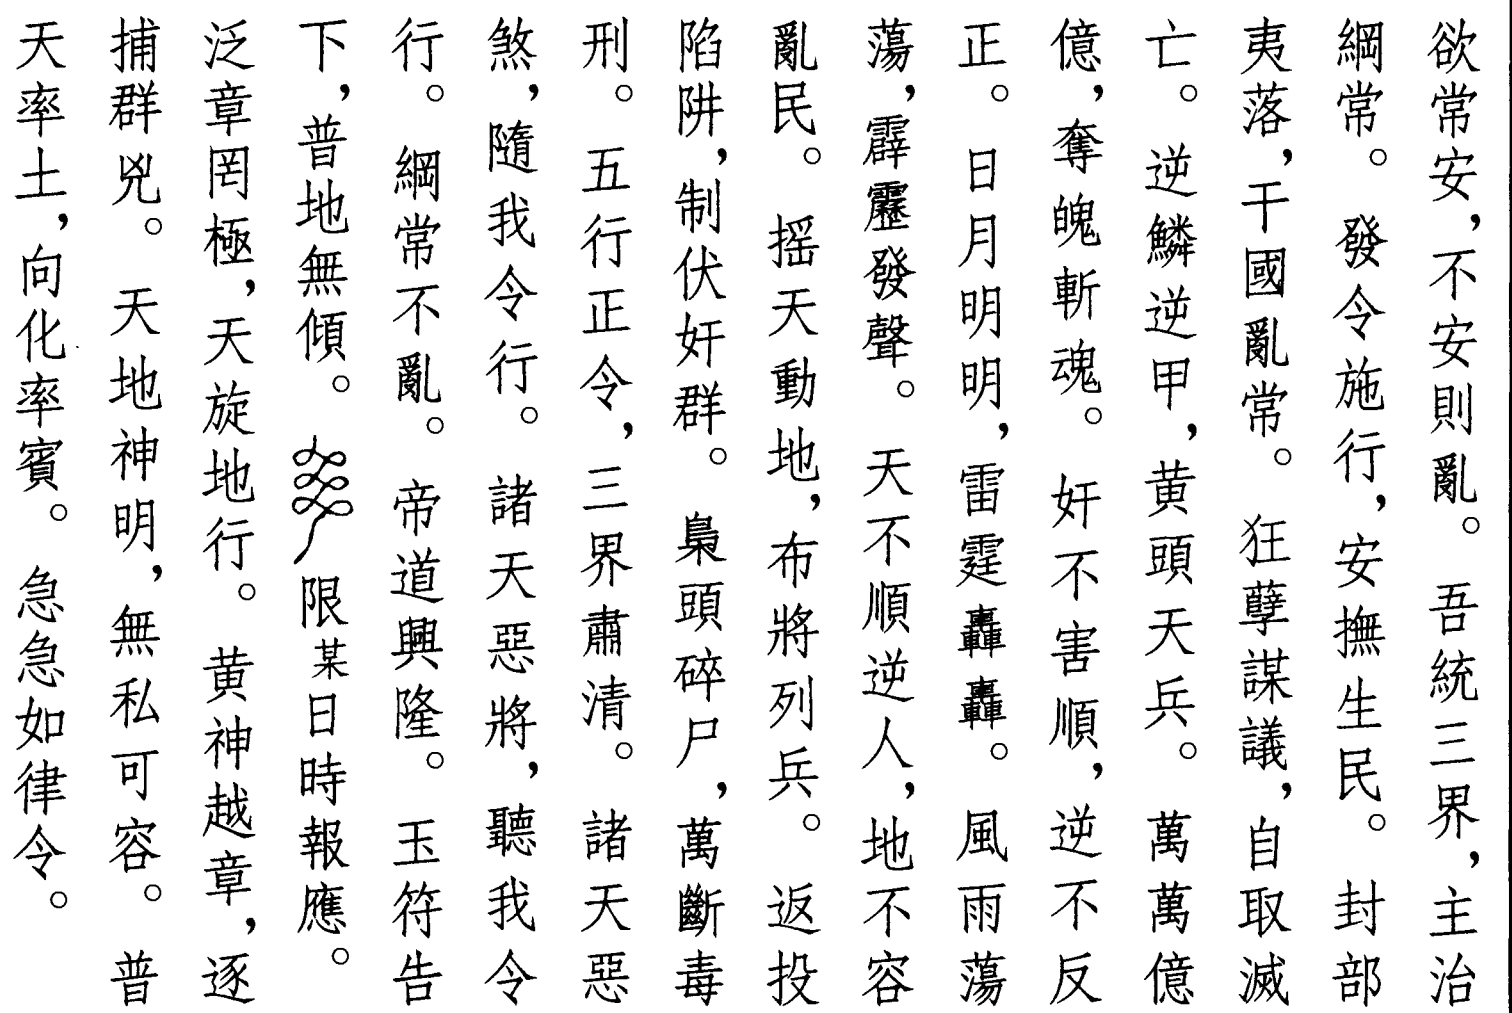 欲常安，不安則亂。吾統三界，主治
綱常。發令施行，安撫生民。封部
夷落，干國亂常。狂孽謀議，自取滅
亡。逆鱗逆甲，黄頭天兵。萬萬億
億，奪魄斬魂。奸不害順，逆不反
正。日月明明，雷霆轟轟。風雨蕩
蕩，霹靂發聲。天不順逆人，地不容
亂民。摇天動地，布將列兵。返投
陷阱，制伏奸群。梟頭碎尸，萬斷毒
刑。五行正令，三界肅清。諸天惡
煞，隨我令行。諸天惡將，聽我令
行。綱常不亂。帝道興隆。玉符告
下，普地無傾。限某日時報應。
泛章罔極，天旋地行。黄神越章，逐
捕群兇。天地神明，無私可容。普
天率土，向化率賓。急急如律令。